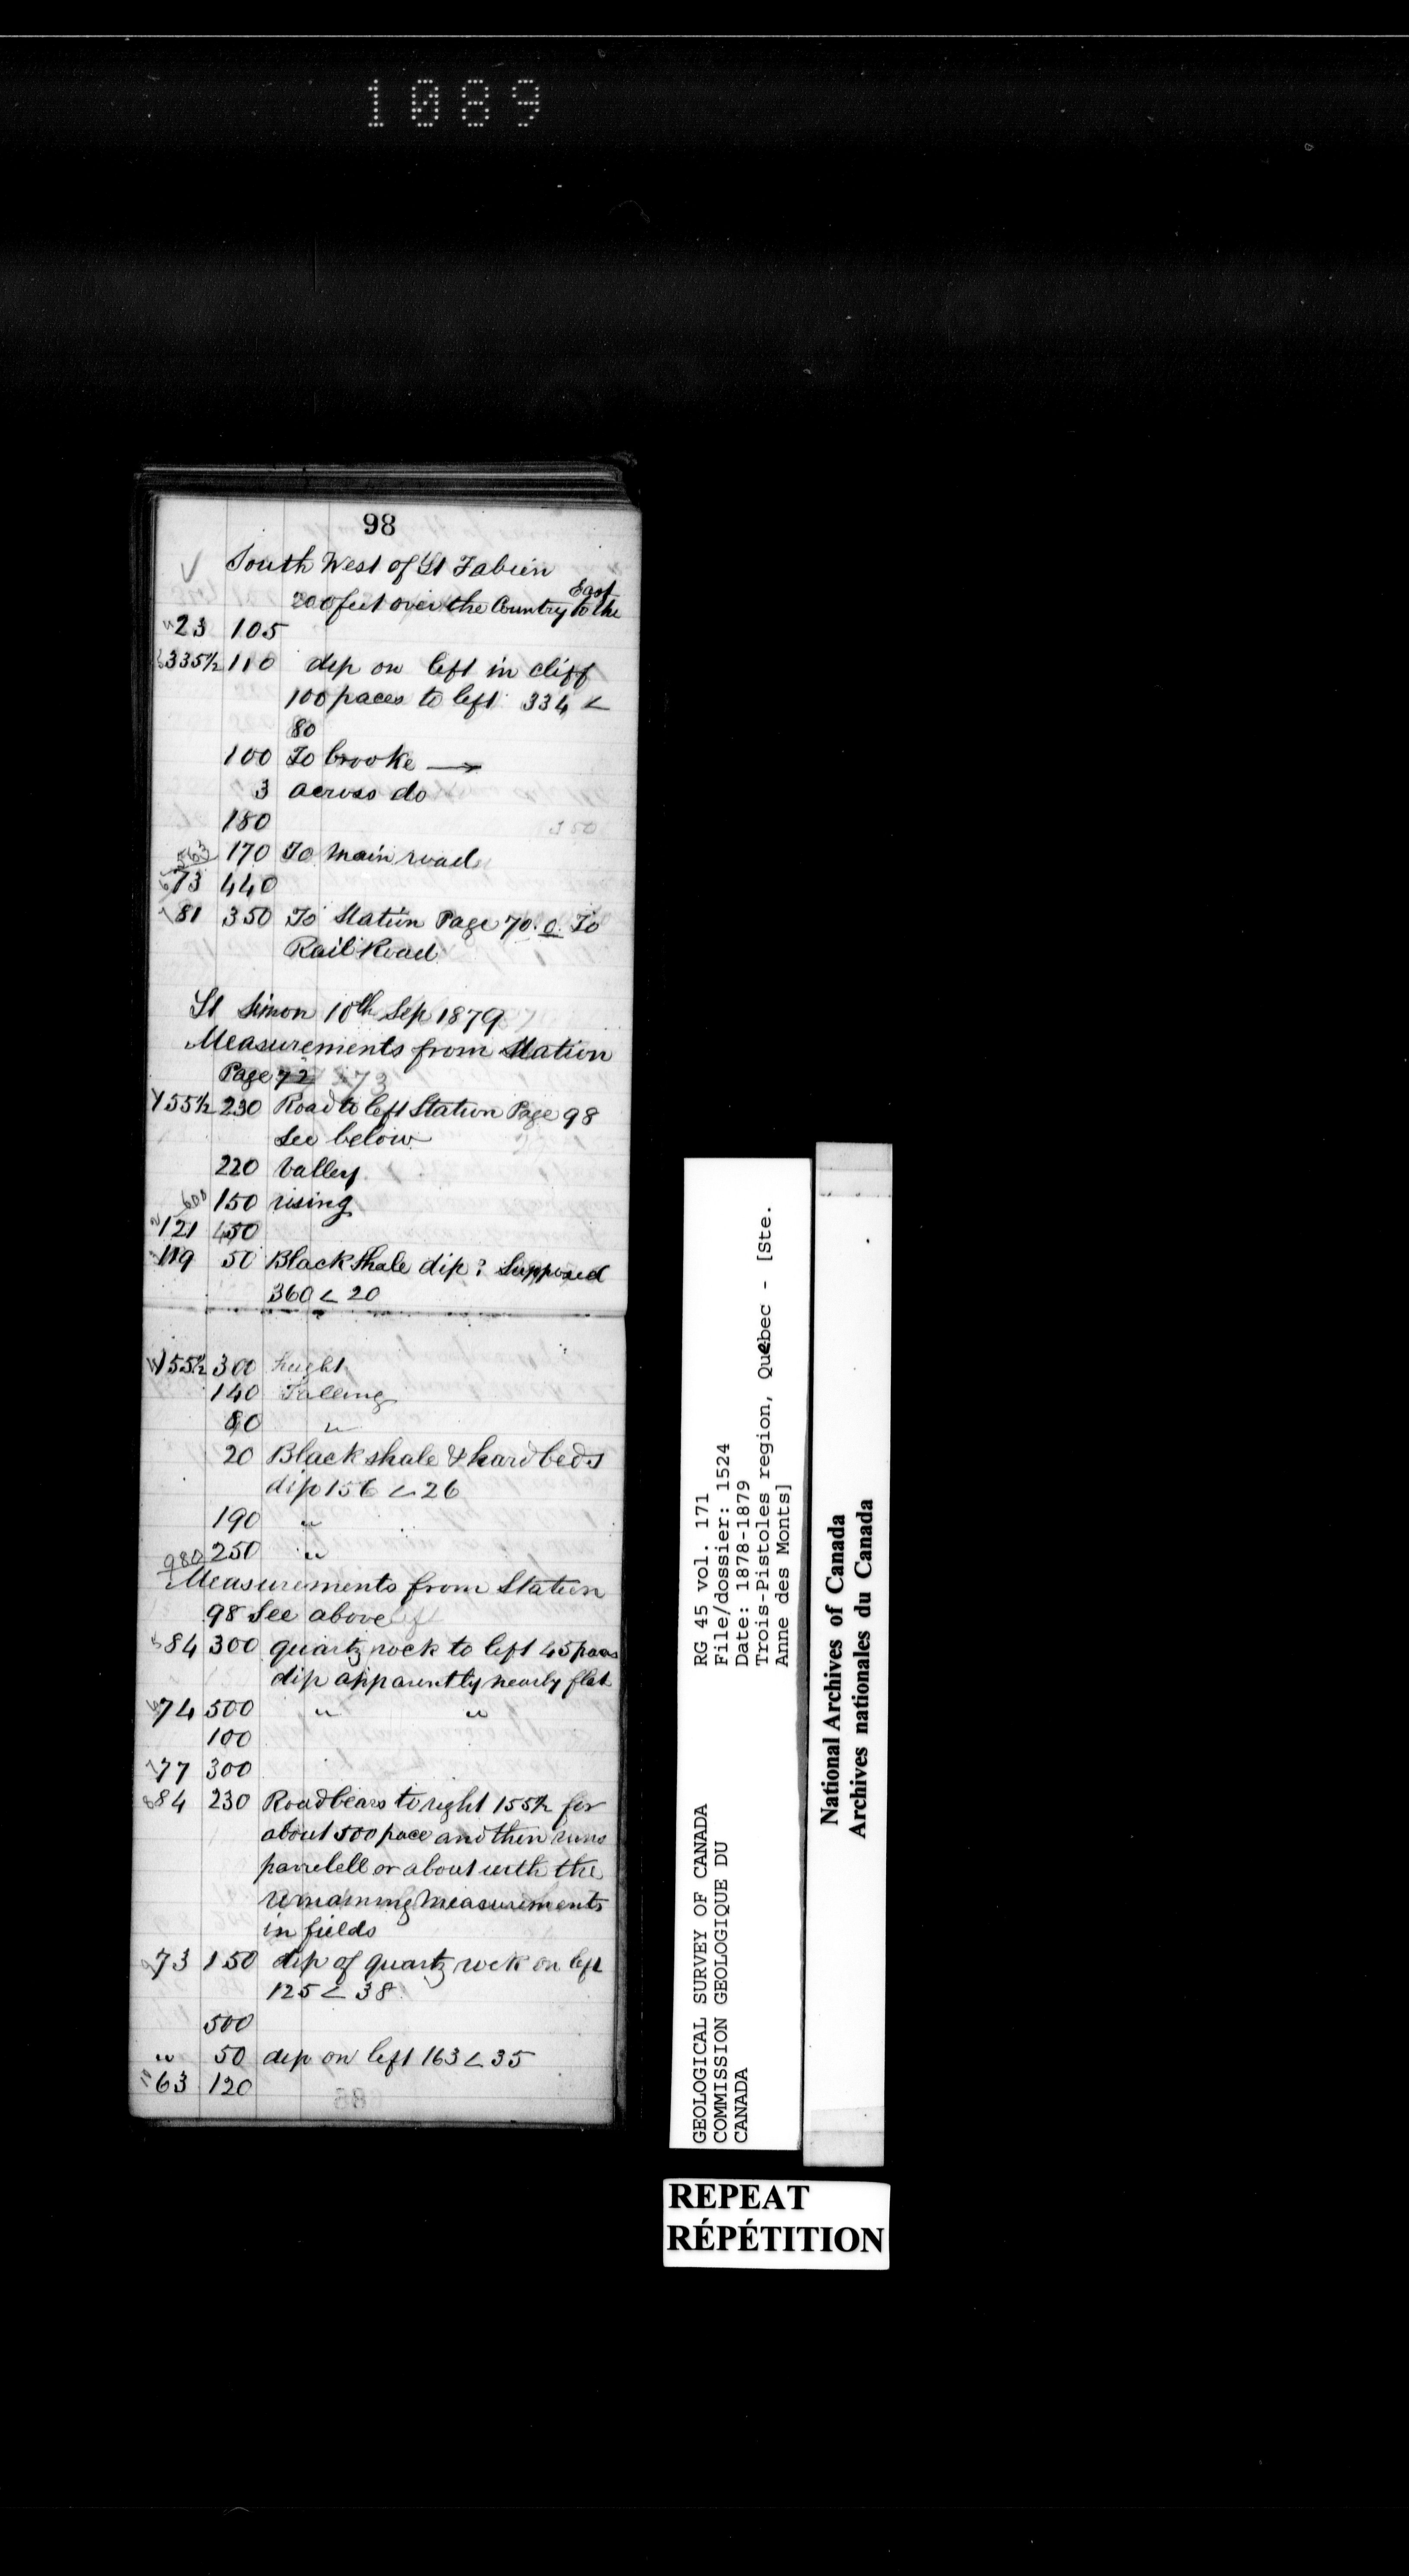 1089
98
South West of St Fabien
East
200 feet over the Country to the
23 105
335½ 110 dip on left in cliff
100 paces to left 334 <
80
100 To brooke →
3 across do
180
563 170 To Main road
73 440
81 350 To Station Page 70. 0. To
Rail Road
St Simon 10th Sep 1879
Measurements from Station
Page 72 73
155½ 230 Road to left Station Page 98
See below
220 Valley
600 150 rising
121 450
119 50 Black Shale dip? Supposed
360 < 20
155½ 300 height
140 Falling
80 "
20 Black shale & hard beds
dip 156 < 26
190 "
980 250 "
Measurements from Station
98 See above
84 300 quartz rock to left 45 paces
dip apparently nearly flat
74 500 " "
100
77 300
84 230 Road bears to right 155½ for
about 500 pace and then runs
parrelell or about with the
remaining measurements
in fields
73 150 dip of quartz rock on left
125 < 38
500
" 50 dip on left 163 < 35
63 120
GEOLOGICAL SURVEY OF CANADA
COMMISSION GEOLOGIQUE DU
CANADA
RG 45 vol. 171
File/dossier: 1524
Date: 1878-1879
Trois-Pistoles region, Quebec - [Ste.
Anne des Monts]
National Archives of Canada
Archives nationales du Canada
REPEAT
RÉPÉTITION